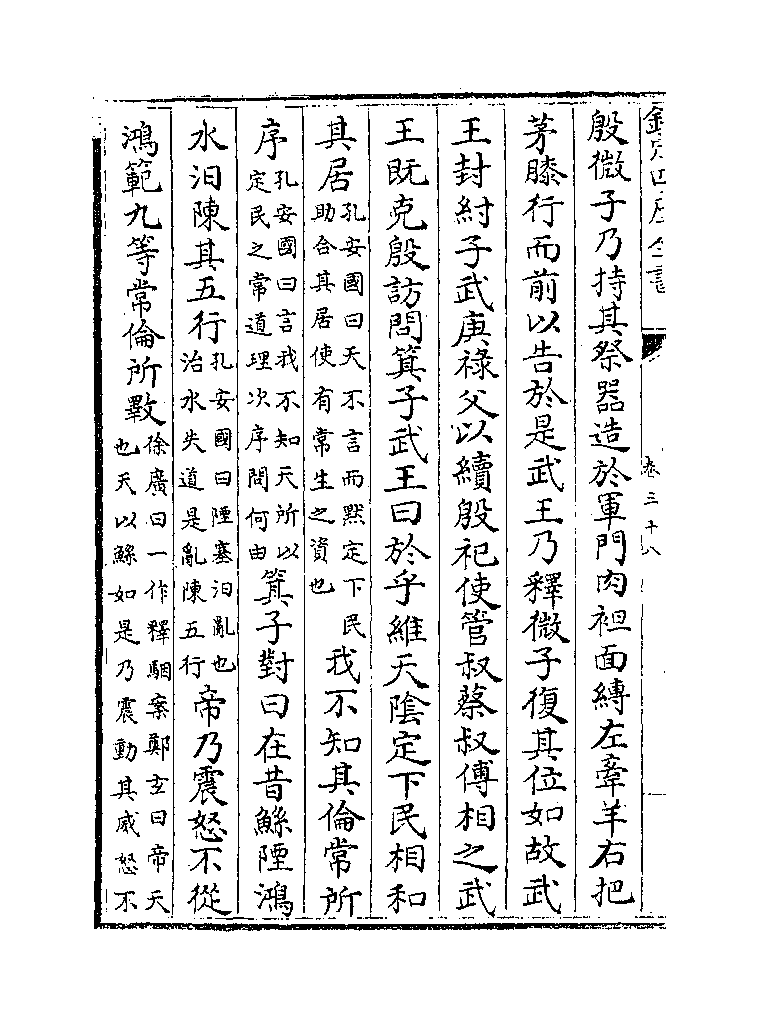 欽定四庫全書
卷三十八
殷微子乃持其祭器造於軍門肉袒面縛左牽羊右把
茅膝行而前以告於是武王乃釋微子復其位如故武
王封紂子武庚祿父以續殷祀使管叔蔡叔傅相之武
王既克殷訪問箕子武王曰於乎維天陰定下民相和
其居孔安國曰天不言而默定下民助合其居使有常生之資也我不知其倫常所
序孔安國曰言我不知天所以定民之常道理次序問何由箕子對曰在昔鯀陻鴻
水汩陳其五行孔安國曰陻塞汩亂也治水失道是亂陳五行帝乃震怒不從
鴻範九等常倫所斁徐廣曰一作釋駰案鄭玄曰帝天也天以鯀如是乃震動其威怒不